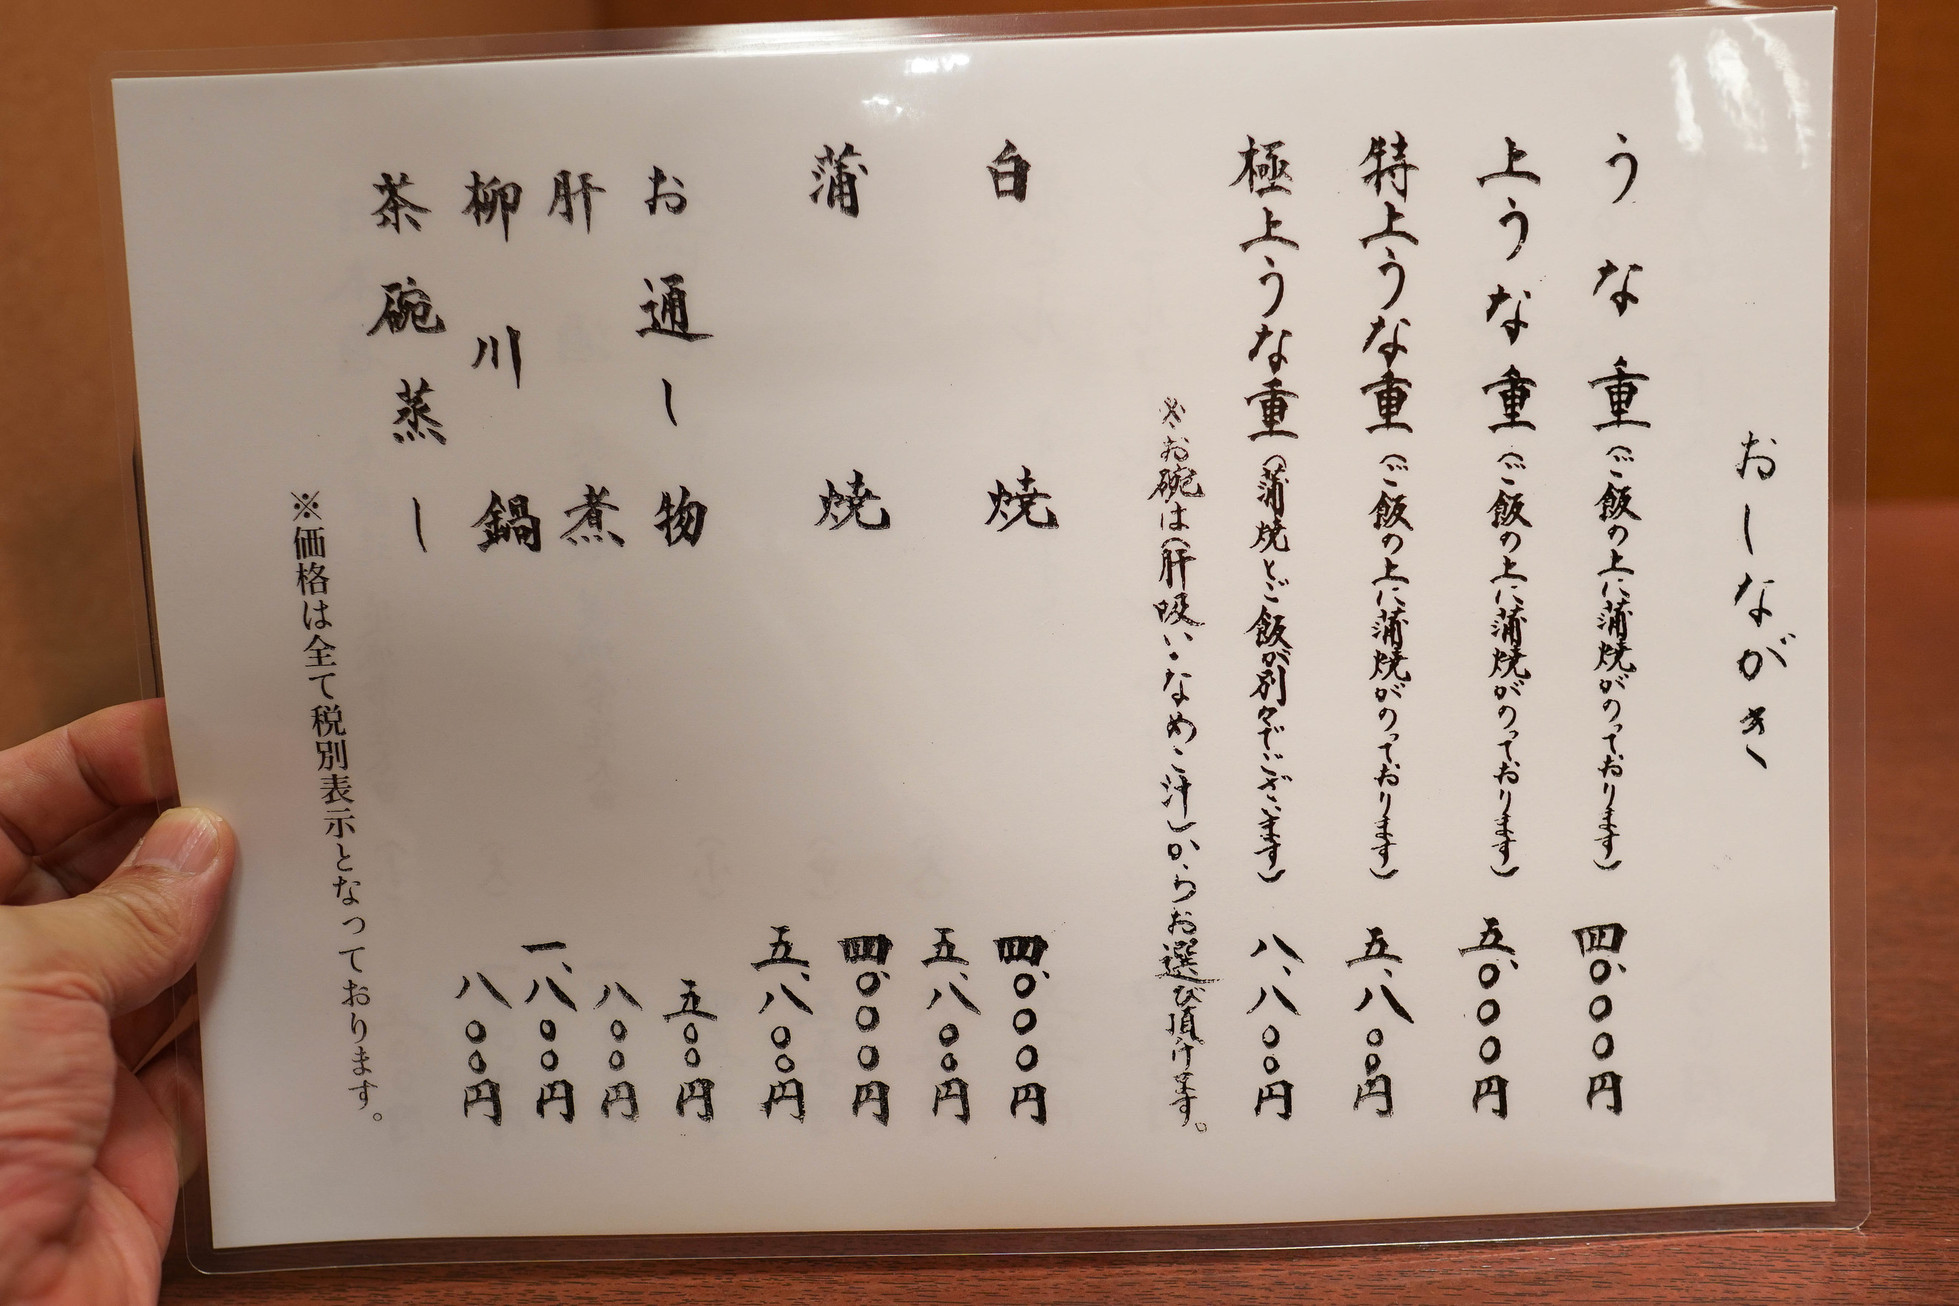 おしながき
うな重(ご飯の上に蒲焼がのっております) 四、〇〇〇円
上うな重(ご飯の上に蒲焼がのっております) 五、〇〇〇円
特上うな重(ご飯の上に蒲焼がのっております) 五、八〇〇円
極上うな重(蒲焼とご飯が別々でございます) 八、八〇〇円
※お碗は(肝吸い・なめこ汁)からお選び頂けます。
白焼 四、〇〇〇円
五、八〇〇円
蒲焼 四、〇〇〇円
五、八〇〇円
お通し物 五〇〇円
肝煮 八〇〇円
柳川鍋 一、八〇〇円
茶碗蒸し 八〇〇円
※価格は全て税別表示となっております。